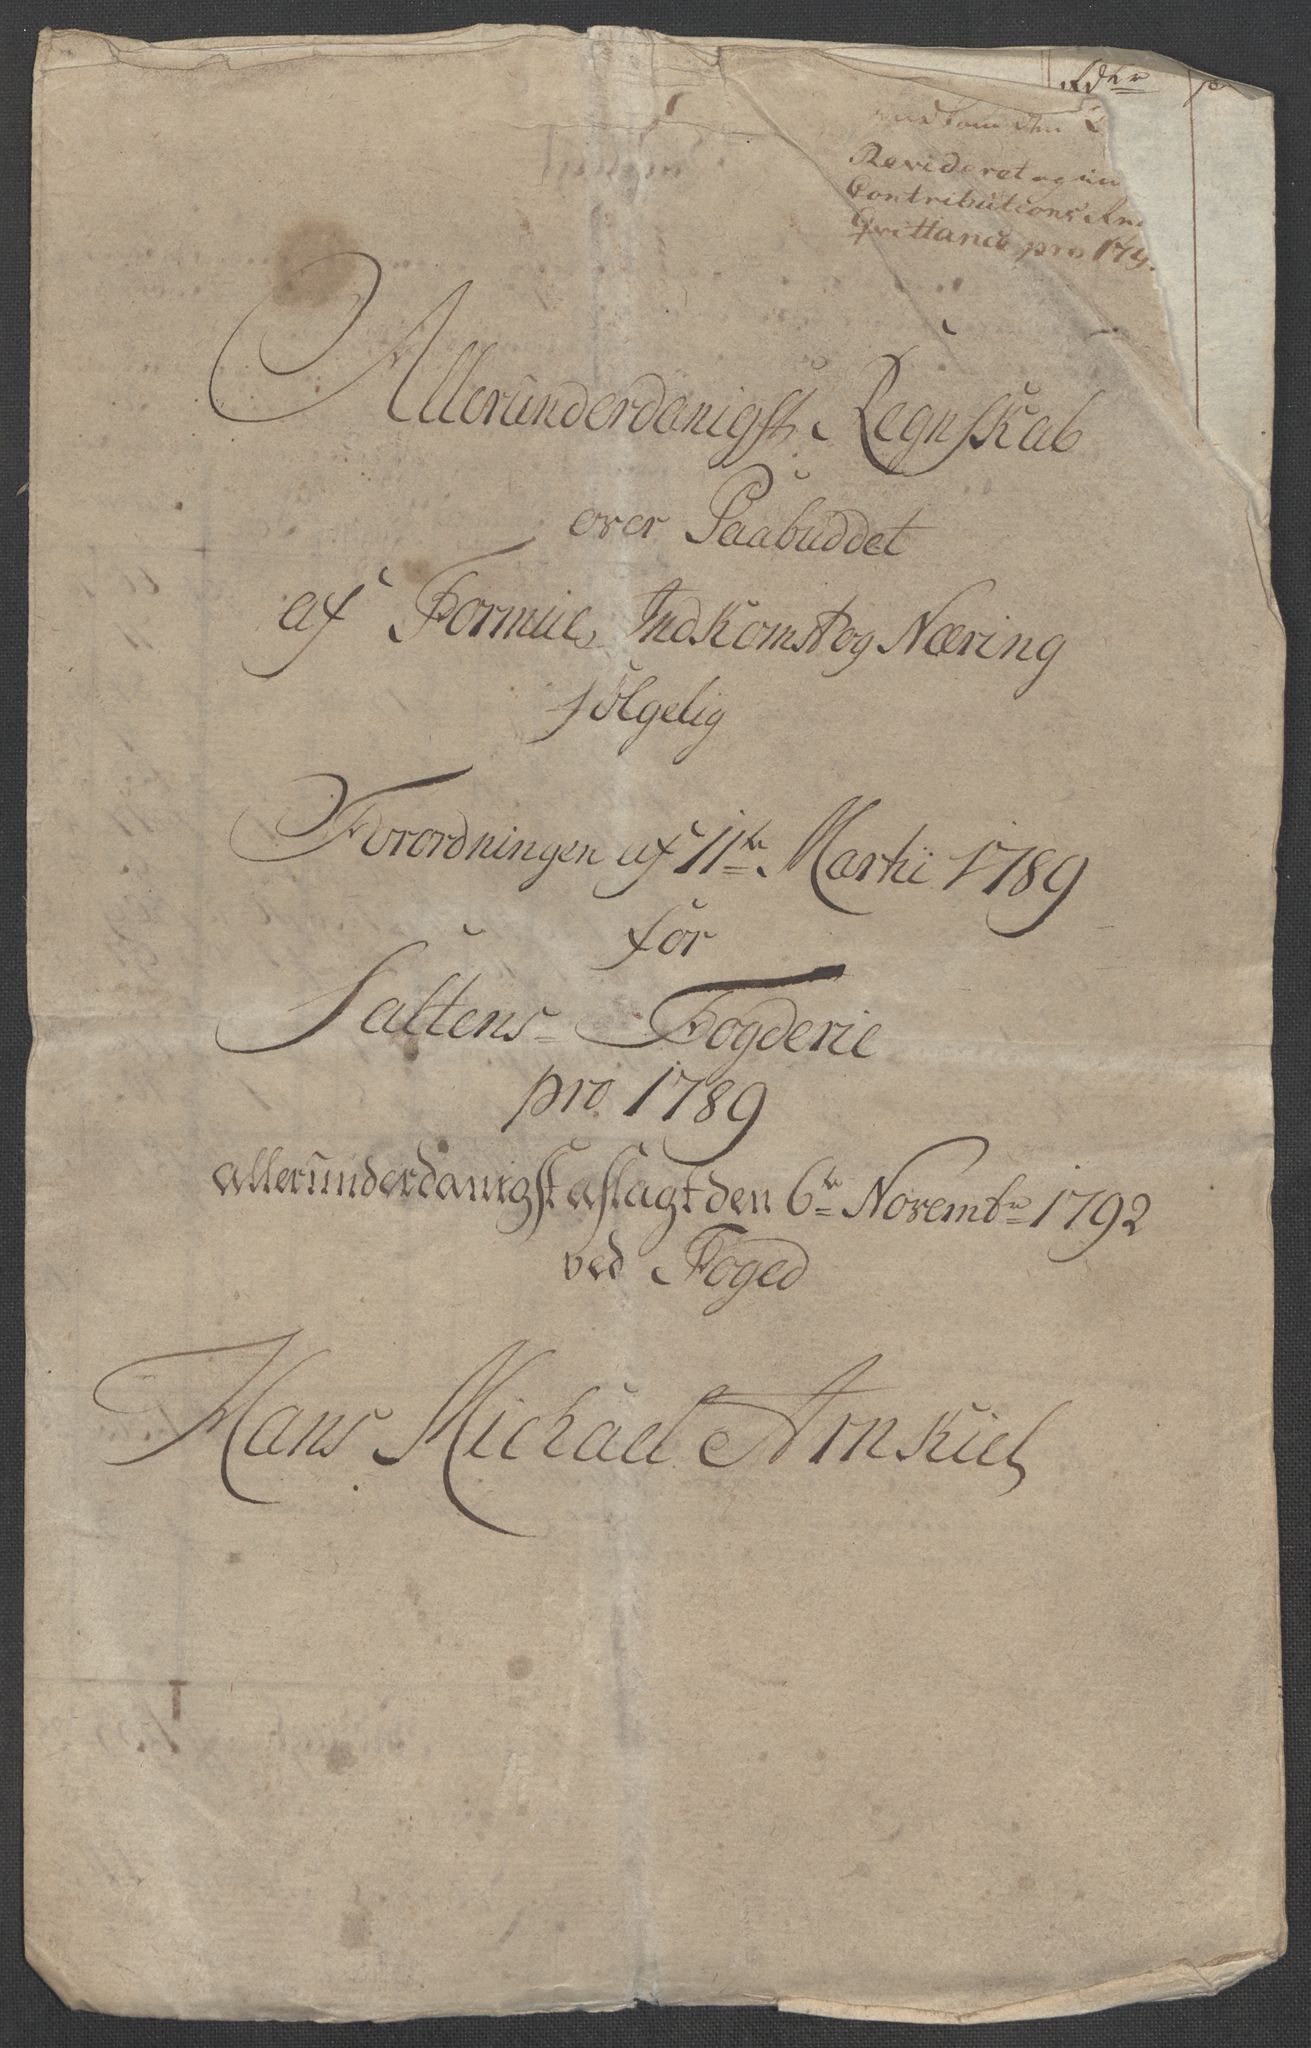 Rdlr
Revideret og
Contributions
Qvittance pro 179
Allerunderdanigst Regnskab
over Paabuddet
af Formue, Indkomst og Næring
følgelig
Forordningen af 11te Martii 1789
for
Saltens Fogderie
pro 1789
allerunderdanigst aflagt den 6te Novembr 1792
ved Foged
Hans Michael Arnkiel